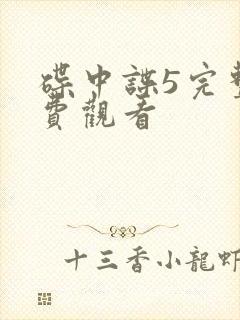 碟中諜5完整
費觀看
十三香小龍蝦